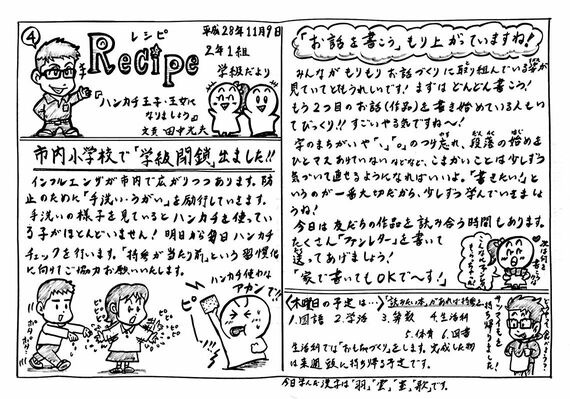 ④
レシピ
Recipe
平成28年11月9日
2年1組
学級だより
「ハンカチ王子・王女に
なりましょう」
文責 田中光夫
市内小学校で「学級閉鎖」出ました!!
インフルエンザが市内で広がりつつあります。防
止のために「手洗い・うがい」を励行しています。
手洗いの様子を見ているとハンカチを使ってい
る子がほとんどいません！明日から毎日ハンカチ
チェックを行います。「持参が当たり前」という習慣化
に向けご協力お願いいたします。
ハンカチ使わな
アカンで!!
ピー
ピピピ
ポタポタ
「お話を書こう」もり上がっていますね！
みんながもりもりお話づくりに取り組んでいる姿が
見ていてとてもうれしいです！まずはどんどん書こう！
もう2つ目のお話(作品)を書き始めている人もい
てびっくり!!すごいやる気ですね〜！
字のまちがいや「、」「。」のつけ忘れ、段落の始めを
ひとマスあけていないなどなど、こまかいことは少しずつ
気づいて直せるようになればいいよ。「書きたい！」と
いうのが一番大切だから、少しずつ学んでいきましょ
うね！
今日は友だちの作品を読み合う時間もあります。
たくさん「ファンレター」を書いて
送ってあげましょう！
「家で書いてもOKで〜す！」
<木曜日の予定は…>
読みたい本があれば持参を
1.国語 2.学活 3.算数 4.生活科
5.体育 6.図書
生活科では「おもちゃづくり」をします。完成した物
は来週頭に持ち帰る予定です。
サツマイモを
持ち帰りました！
今日学んだ漢字は「羽」「雲」「圭」「歌」です。